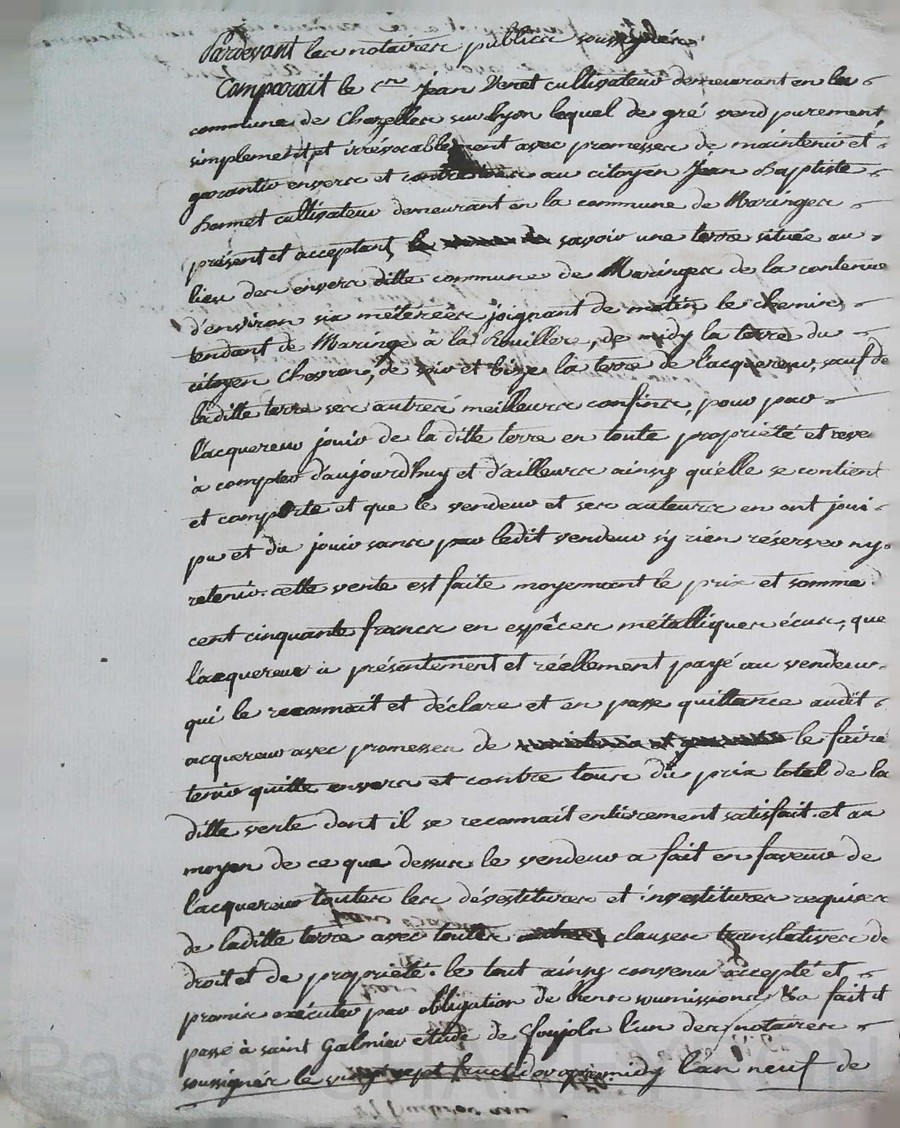 Pardevant les notaires publics soussignés
Comparait le cen Jean Venet cultivateur demeurant en la
commune de Chazelles sur Lyon lequel de gré vend purement
simplement et irrévocablement avec promesses de maintenir et
garantir envers et contre tous au citoyen Jean Baptiste
Bonnet cultivateur demeurant en la commune de Maringes
présent et acceptant savoir une terre située au
lieu des envers ditte commune de Maringes de la contenue
d'environ six méterées joignant de matin le chemin
tendant de Maringe à la de midy la terre du
citoyen de soir et bize la terre de l'acquereur, sauf de
laditte terre ses autres meilleurs confins, pour par
l'acquereur jouir de la ditte terre en toute propriété et
à compter d'aujourd'huy et d'ailleurs ainsy qu'elle se contient
et comporte et que le vendeur et ses auteurs en ont joui
pu et du jouir sans par ledit vendeur s'y rien réserver ny
retenir. cette vente est faite moyennant le prix et somme
cent cinquante francs en espèces métalliques écus, que
l'acquereur à présentement et réellement payé au vendeur
qui le reconnait et déclare et en passe quittance audit
acquereur avec promesses de le faire
tenir quitte envers et contre tous du prix total de la
ditte vente dont il se reconnait entièrement satisfait. et au
moyen de ce que dessus le vendeur a fait en faveur de
l'acquereur toutes les dévestitures et investitures requises
de laditte terre avec toutes clauses translatives de
droit et de propriété. le tout ainsy convenu accepté et
promis exécuter par obligation de biens soumissions &a fait et
passé à saint Galmier étude de l'un des notaires
soussignés le vingt sept fructidor après midy l'an neuf de